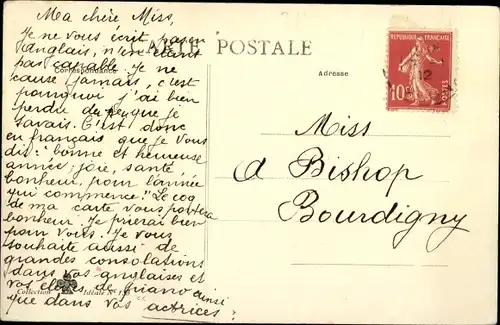 Ma chère Miss,
Je ne vous écrit pas en
anglais, n'en étant
pas capable. Je ne
cause jamais, c'est
pourquoi j'ai bien
perdu du peu que je
savais. C'est donc
en français que je vous
dit: "bonne et heureuse
année; joie, santé
bonheur, pour l'année
qui commence." Le coq
de ma carte vous portera
bonheur. Je prierai bien
pour vous. Je vous
souhaite aussi de
grandes consolations
dans vos anglaises et
vos élèves de piano ainsi
que dans vos actrices.
CARTE POSTALE
Correspondance
Adresse
REPUBLIQUE FRANÇAISE
10
POSTES
12
Miss
A Bishop
Bourdigny
Collection Idéale N°